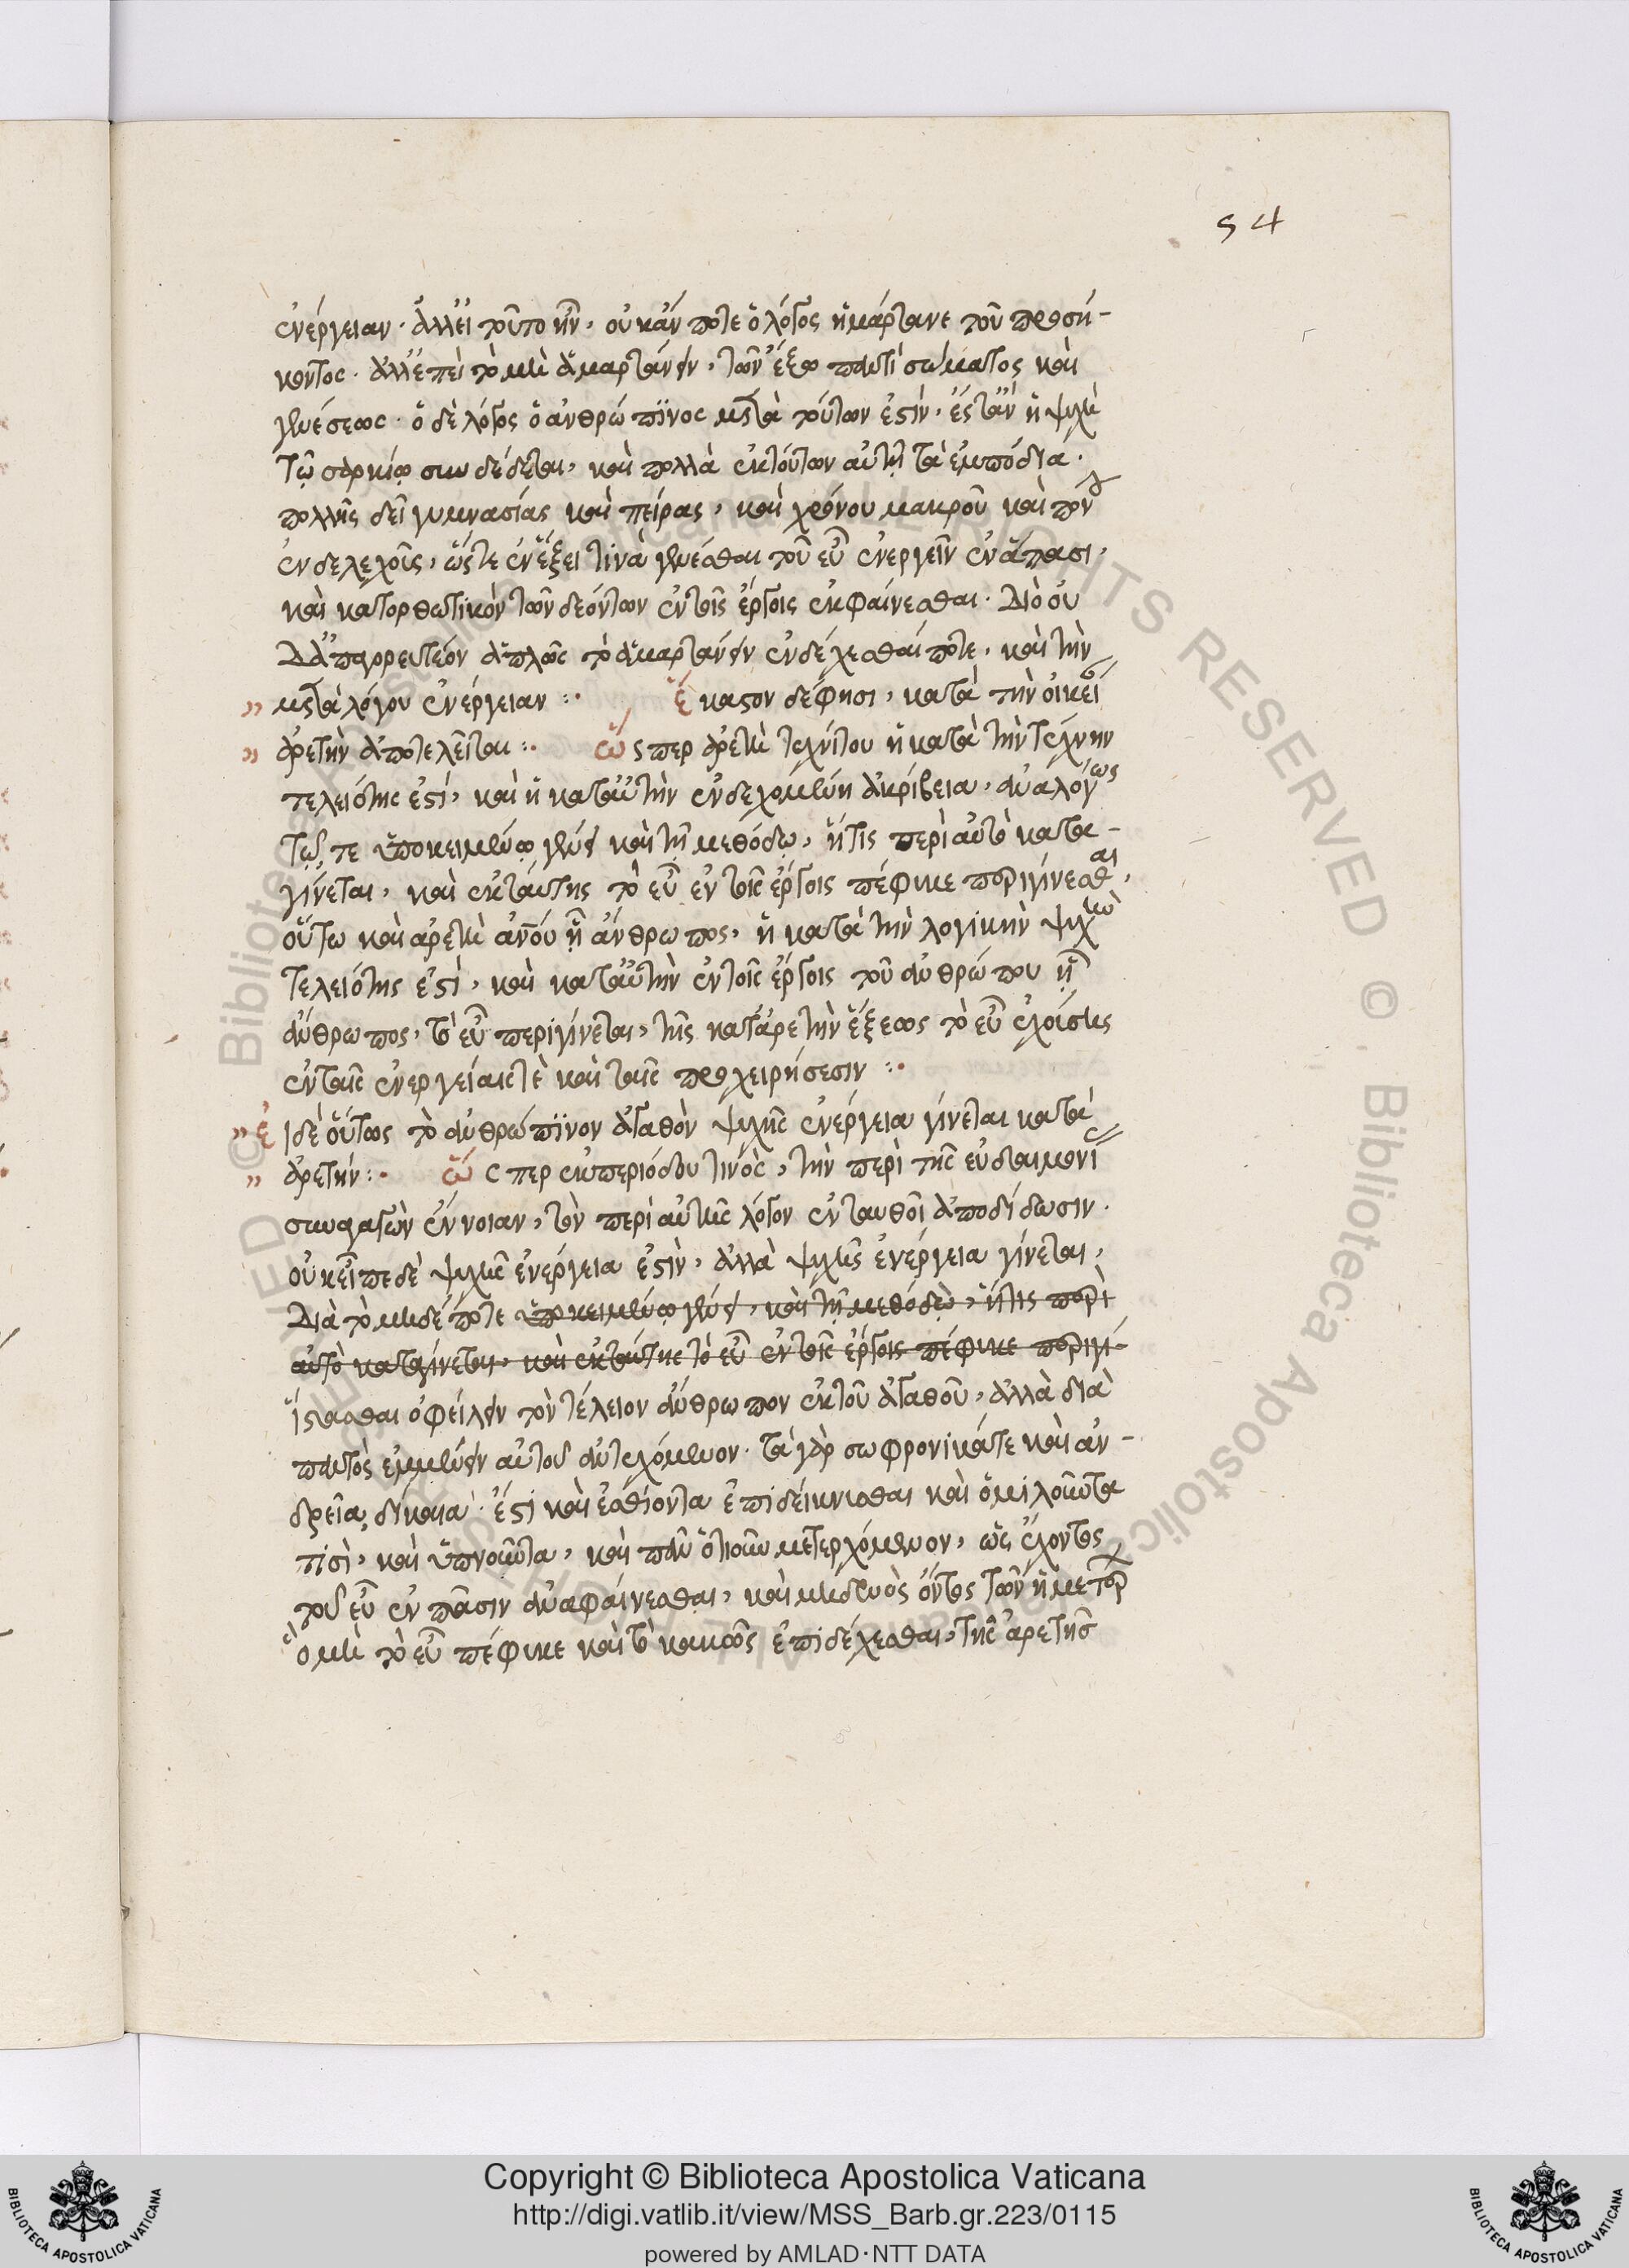 54
ἐνέργειαν· ἀλλ' εἰ τοῦτο ἦν, οὐκ ἄν ποτε ὁ λόγος ἡμάρτανε τοῦ προσή-
κοντος. ἀλλ' ἐπεὶ τὸ μὴ ἁμαρτάνειν, τῶν ἔξω παντὶ σώματος καὶ
γενέσεως· ὁ δὲ λόγος ὁ ἀνθρώπινος μετὰ τούτων ἐστίν, ἔστ' ἂν ἡ ψυχὴ
τῷ σαρκίῳ συνδέδεται, καὶ πολλὰ ἐκ τούτων αὐτῇ τὰ ἐμπόδια.
πολλῆς δεῖ γυμνασίας καὶ πείρας, καὶ χρόνου μακροῦ καὶ πόνου
ἐνδελεχοῦς, ὥστε ἐν ἕξει τινὰ γενέσθαι τοῦ εὖ ἐνεργεῖν ἐν ἅπασι,
καὶ κατορθωτικὸν τῶν δεόντων ἐν τοῖς ἔργοις ἐκφαίνεσθαι. Διὸ οὐ
δ' ἀπαγορευτέον ἁπλῶς τὸ ἁμαρτάνειν ἐνδέχεσθαί ποτε, καὶ τὴν
" μετὰ λόγου ἐνέργειαν :· ἕκαστον δέ φησι, κατὰ τὴν οἰκείαν
" ἀρετὴν ἀποτελεῖται :· ὥσπερ ἀρετὴ τεχνίτου ἡ κατὰ τὴν τέχνην
τελειότης ἐστί, καὶ ἡ κατ' αὐτὴν ἐνδεχομένη ἀκρίβεια, ἀναλόγως
τῷ τε ὑποκειμένῳ γένει καὶ τῇ μεθόδῳ, ἥτις περὶ αὐτὸ κατα-
γίνεται, καὶ ἐκ ταύτης τὸ εὖ ἐν τοῖς ἔργοις πέφυκε περιγίνεσθαι,
οὕτω καὶ ἀρετὴ ἀνου ᾗ ἄνθρωπος, ἡ κατὰ τὴν λογικὴν ψυχὴν
τελειότης ἐστὶ, καὶ κατ' αὐτὴν ἐν τοῖς ἔργοις τοῦ ἀνθρώπου ᾗ
ἄνθρωπος, τὸ εὖ περιγίνεται, τῆς κατ' ἀρετὴν ἕξεως τὸ εὖ ἐχούσης
ἐν ταῖς ἐνεργείαις τὲ καὶ ταῖς προχειρήσεσιν :·
" εἰ δὲ οὕτως τὸ ἀνθρώπινον ἀγαθὸν ψυχῆς ἐνέργεια γίνεται κατὰ
" ἀρετήν :· ὥσπερ ἐκ περιόδου τινὸς, τὴν περὶ τῆς εὐδαιμονίας
συναγαγὼν ἔννοιαν, τὸν περὶ αὐτῆς λόγον ἐνταυθοῖ ἀποδίδωσιν.
οὐκ εἶπε δὲ ψυχῆς ἐνέργεια ἐστὶν, ἀλλὰ ψυχῆς ἐνέργεια γίνεται,
Διὰ τὸ μηδέποτε ὑποκειμένῳ γένει, καὶ τῇ μεθόδῳ, ἥτις περὶ
αὐτὸ καταγίνεται, καὶ ἐκ ταύτης τὸ εὖ ἐν τοῖς ἔργοις πέφυκε περιγί-
ἵστασθαι ὀφείλειν τὸν τέλειον ἄνθρωπον ἐκ τοῦ ἀγαθοῦ, ἀλλὰ διὰ
παντὸς ἐμμένειν αὐτοῦ ἀντεχόμενον. τὰ γὰρ σωφρονικά τε καὶ ἀν-
δρεῖα, δίκαια· ἔστι καὶ ἐσθίοντα ἐπιδείκνυσθαι καὶ ὁμιλοῦντα
τισὶ, καὶ ὑπνοῦντα, καὶ πᾶν ὁτιοῦν μετερχόμενον, ὡς ἔχοντος
τοῦ εὖ ἐν πᾶσιν ἀναφαίνεσθαι, καὶ μηδενὸς ὄντος τῶν ἡμετέρων
ὃ μὴ τὸ εὖ πέφυκε καὶ τὸ κακῶς ἐπιδέχεσθαι, τῆς ἀρετῆς
© Biblioteca Apostolica Vaticana ALL RIGHTS RESERVED © Biblioteca Apostolica Vaticana ALL RIGHTS RESERVED
Copyright © Biblioteca Apostolica Vaticana
http://digi.vatlib.it/view/MSS_Barb.gr.223/0115
powered by AMLAD·NTT DATA
BIBLIOTECA APOSTOLICA VATICANA
BIBLIOTECA APOSTOLICA VATICANA